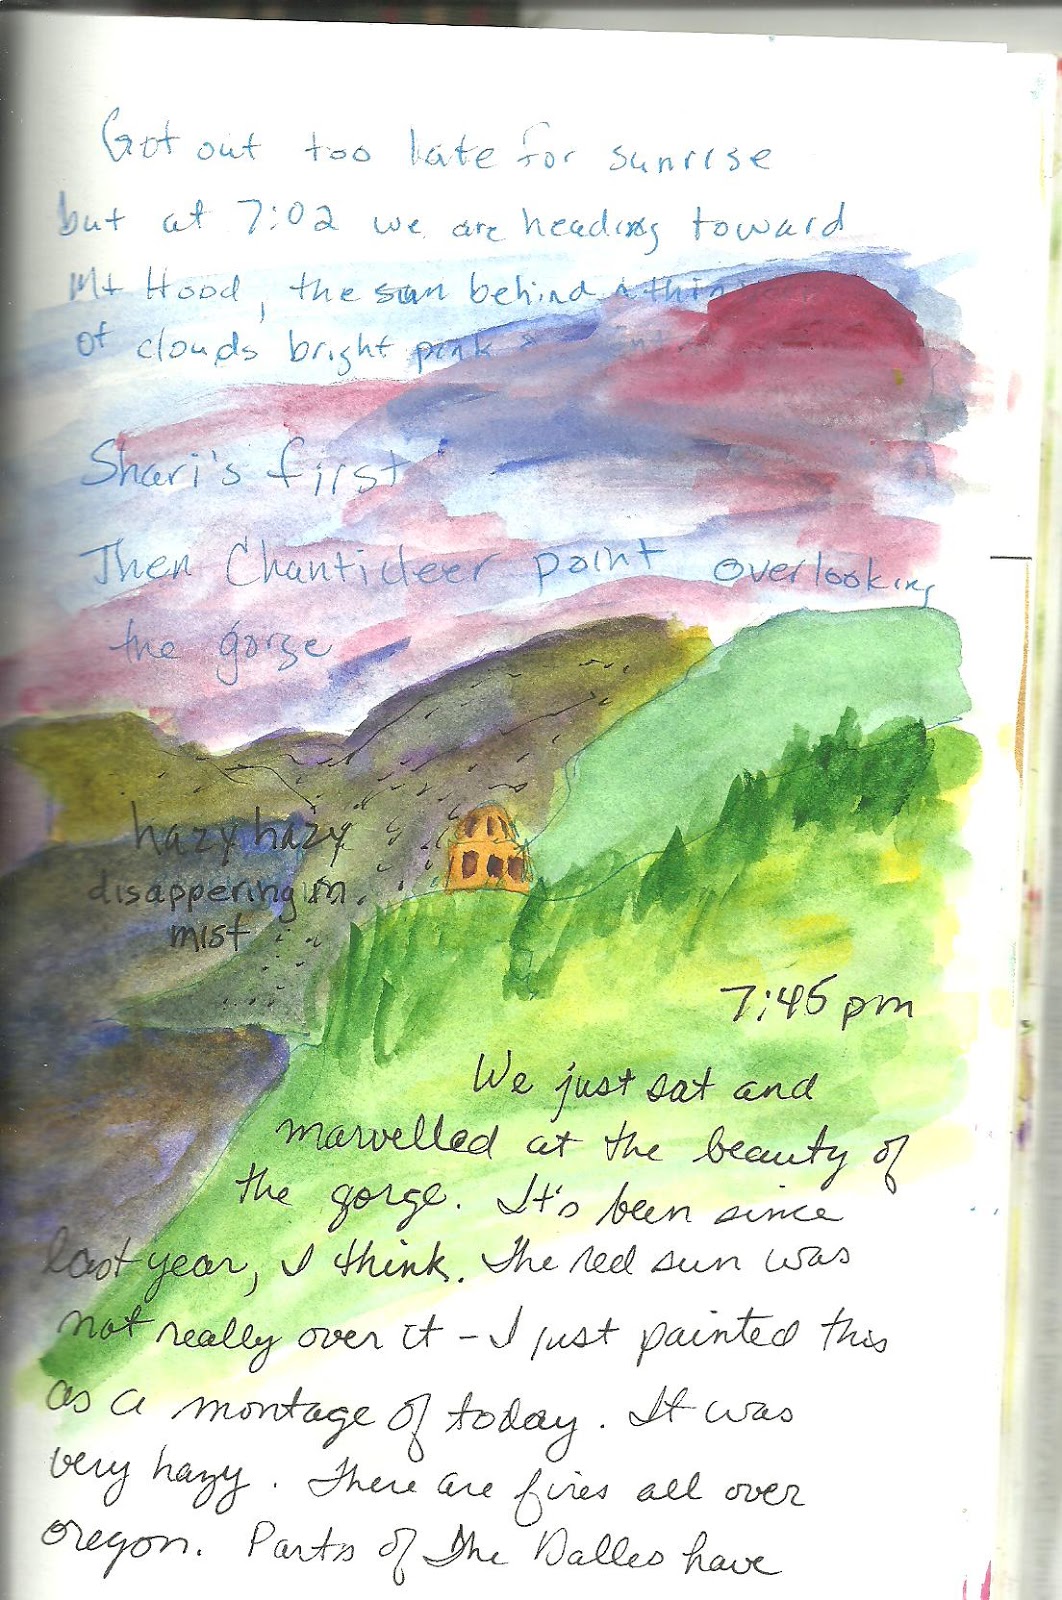 Got out too late for sunrise
but at 7:02 we are heading toward
Mt Hood, the sun behind a thin
of clouds bright pink
Shari's first
Then Chanticleer point overlooking
the gorge
hazy hazy
disappering in
mist
7:45 pm
We just sat and
marvelled at the beauty of
the gorge. It's been since
last year, I think. The red sun was
not really over it - I just painted this
as a montage of today. It was
very hazy. There are fires all over
oregon. Parts of The Dalles have